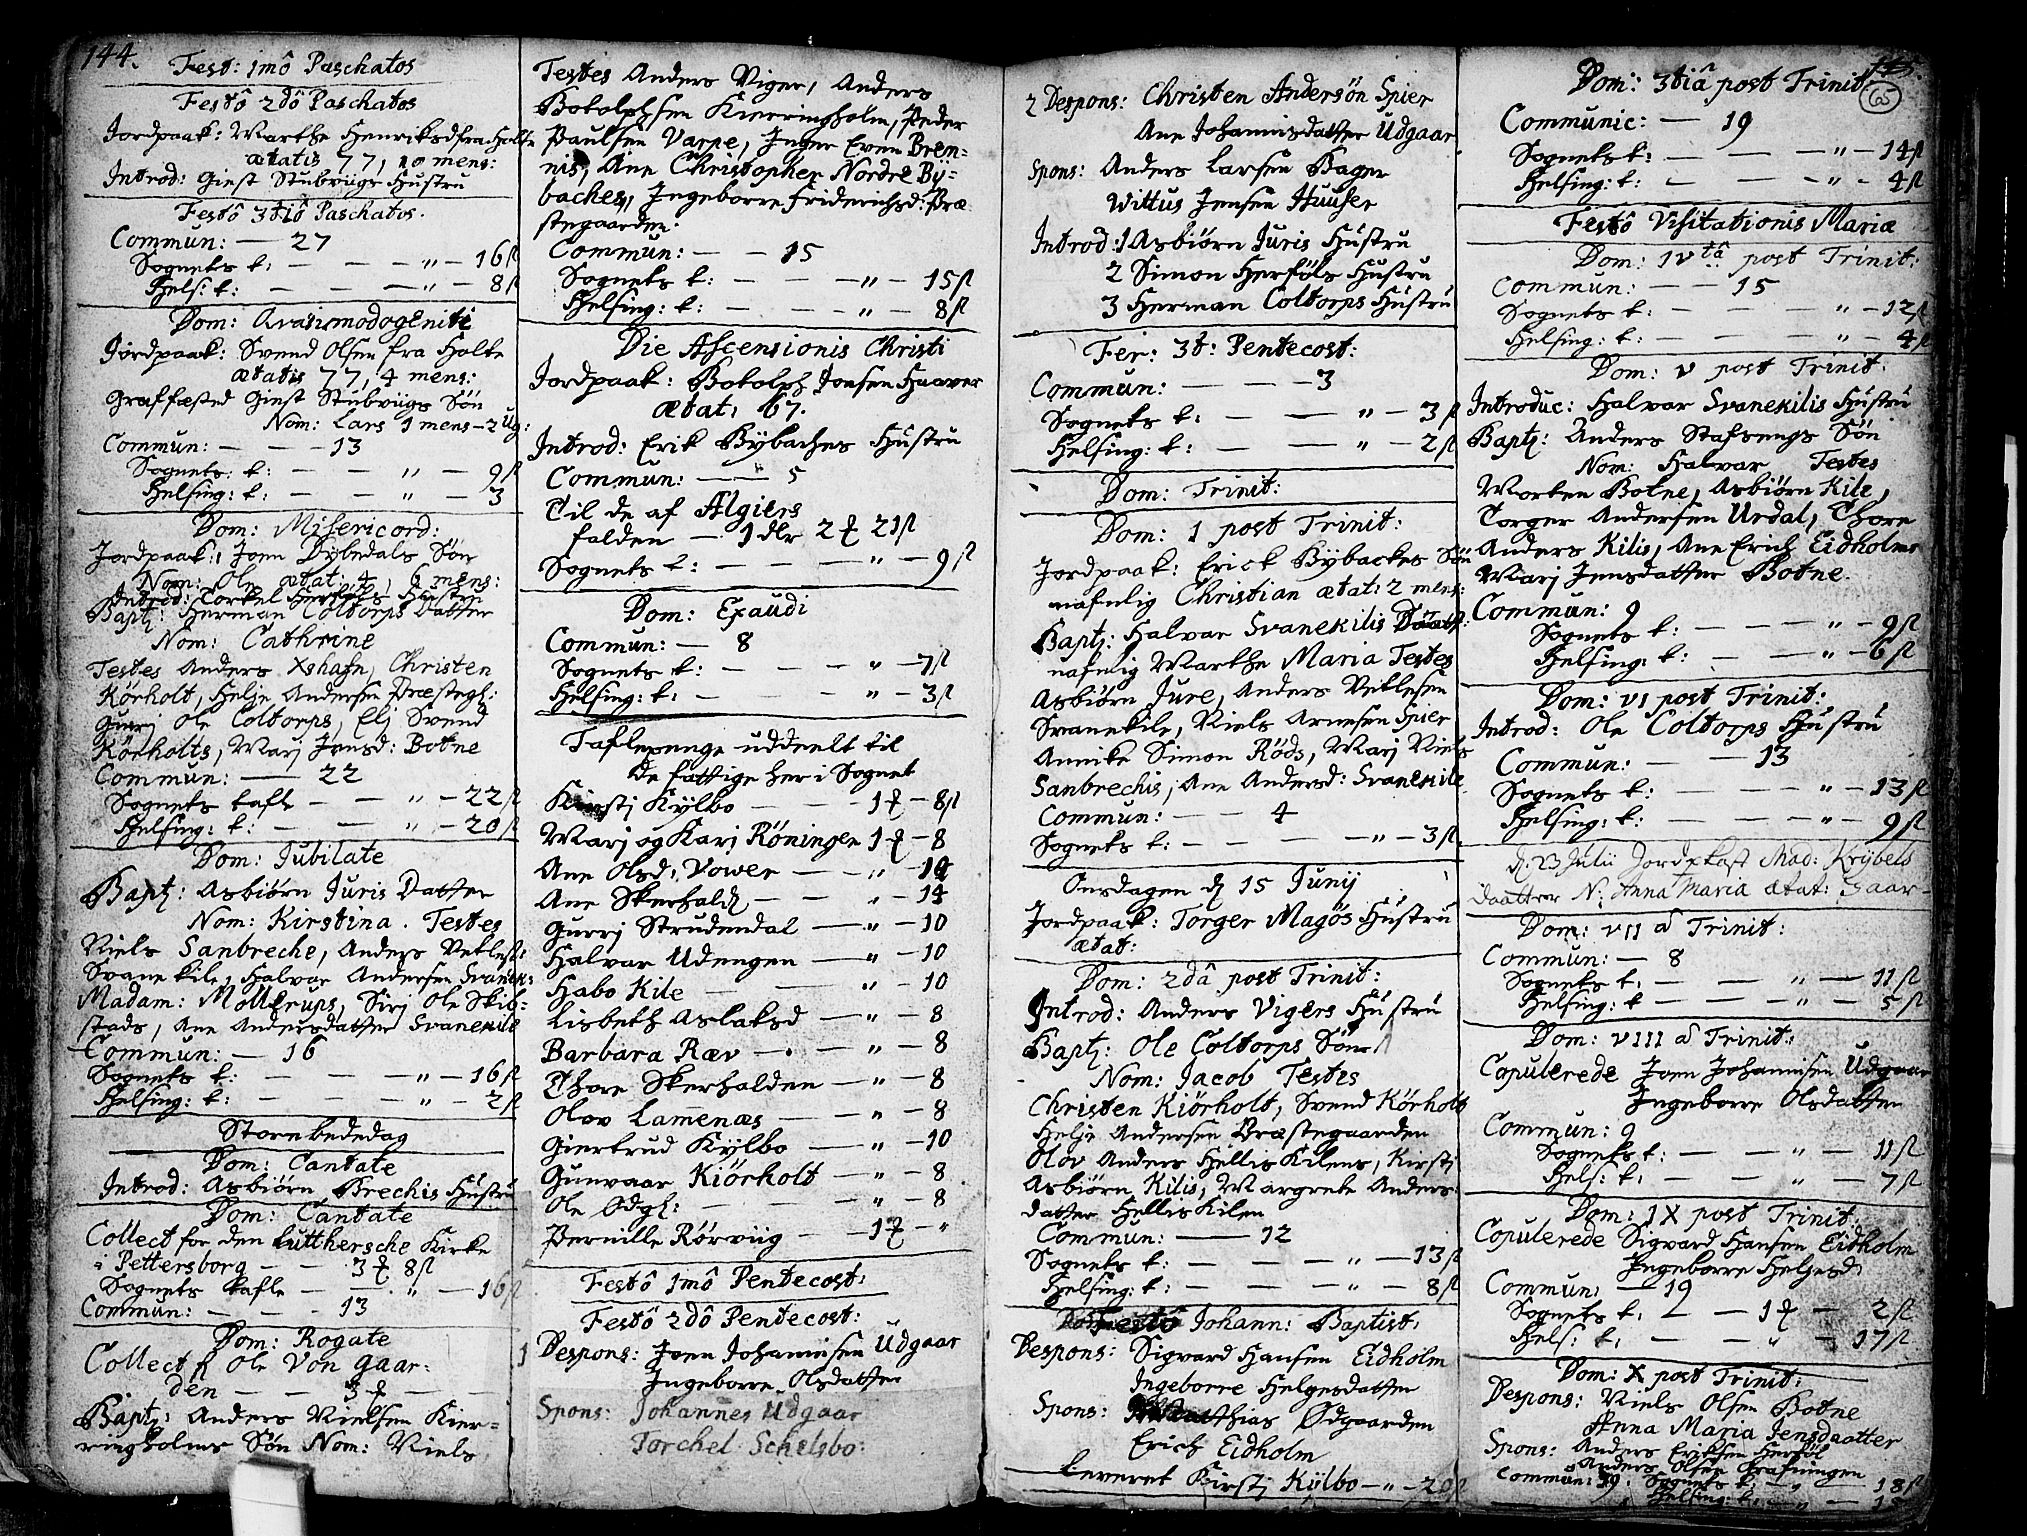 144.
Fest: 1mô Paschatos
Festô 2dô Paschatos
Jordpaak: Marthe Henriksd fra Holte
ætatis 77, 10 mens:
Introd: Giest Stubviigs Hustru
Festô 3tiô Paschatos.
Commun: — 27
Sognets t: — — — " — 16 ß
Helsi: t: — — — " — 8 ß
Dom: Qvasimodogeniti
Jordpaak: Svend Olsen fra Holte
ætatis 77, 4 mens:
Graffæsted Giest Stubviigs Søn
Nom: Lars 1 mens — 2 Ug:
Commun: — — 13
Sognets: t: — — " — 9 ß
Helsing: t: — — " — 3
Dom: Misericord:
Jordpaak: Joen Dybedals Søn
Nom: Ole ætat: 4, 6 mens:
Introd: Torkel Herføls Hustru
Bapt: Herman Coltorps Datter
Nom: Cathrine
Testes Anders Xshafn, Christen
Körholt, Helje Andersen Præstegh:
Gurrj Ole Coltorps, Elj Svend
Körholts, Marj Jensd: Botne
Commun: — 22
Sognets tafle — — " — 22 ß
Helsing: t: — — " — 20 ß
Dom: Jubilate
Bapt: Asbiørn Juris Datter
Nom: Kirstina. Testes
Niels Sanbreche, Anders Vetlest:
Svane kile, Halvar Andersen Svanek:
Madam: Mollerups, Sirj Ole Skib-
stads, Ane Andersdatter Svanekile
Commun: — 16
Sognets t: — — — " — 16 ß
Helsing: t: — — — " — 2 ß
Storebededag
Dom: Cantate
Introd: Asbiørn Brechis Hustru
Dom: Cantate
Collect for den Lutthersche Kirke
i Pettersborg — — 3 8 ß
Sognets tafle — — " — 16 ß
Commun: — — — 13
Dom: Rogate
Collect Ole Von gaar:
den — — 3 —
Bapt: Anders Nielsen Kier-
ringholms Søn Nom: Niels
Testes Anders Viger, Anders
Botolphsen Kierringholm, Peder
Paulsen Varpe, Inger Even Brem-
nis, Ane Christopher Nordre By-
baches, Ingeborre Friderichsd: Præ
stegaarden.
Commun: — — 15
Sognets t: — — — " — 15 ß
Helsing: t: — — — " — 8 ß
Die Ascensionis Christi
Jordpaak: Botolph Jonsen Haaver
ætat: 67.
Introd: Erik Bybaches Hustru
Commun: — — 5
Til de af Algiers
falden — 1 dlr 2 21 ß
Sognets t: — — — " — 9 ß
Dom: Exaudi
Commun: — 8
Sognets t: — — — " — 7 ß
Helsing: t: — — — " — 3 ß
Taflepenge uddeelt til
de fattige her i Sognet
Kirstj Kylbo — — — 1 — 8 ß
Marj og Karj Röningen 1 — 8
Ane Olsd: Vower — — " — 14
Ane Skerhald — — " — 14
Gurrj Strudendal — " — 10
Halvar Udengen — " — 10
Habo Kile — — — " — 10
Lisbeth Aslaksd — " — 8
Barbara Ræv — — " — 8
Thore Skerhalden — " — 8
Olov Lamenæs — " — 8
Giertrud Kylbo — " — 10
Gunvaar Kiörholt — " — 8
Ole Ødgh: — — — " — 8
Pernille Rörviig — 1 — "
Festô 1mô Pentecost:
Festô 2dô Pentecost:
1 Despons: Joen Johannisen Udgaar
Ingeborre Olsdatter
Spons: Johannes Udgaar
Torchel Schelsbo:
2 Despons: Christen Andersön Spier
Ane Johannisdatter Udgaar
Spons: Anders Larsen Bager
Wittus Jensen Huuser
Introd: 1 Asbiörn Juris Hustru
2 Simon Herföls Hustru
3 Herman Coltorps Hustru
Fer: 3t: Pentecost:
Commun: — — — 3
Sognets t: — — " — 3 ß
Helsing: t: — — " — 2 ß
Dom: Trinit:
Dom: 1 post Trinit:
Jordpaak: Erick Bybackes Søn
nafnlig Christian ætat: 2 mens:
Bapt: Halvar Svanekilis Daatt:
nafnlig Marthe Maria Testes
Asbiørn Jure, Anders Vetlesen
Svanekile, Niels Arnesen Spier
Annike Simon Röds, Marj Niels
Sanbrechis, Ane Andersd: Svanekile
Commun: — — 4
Sognets t: — — — " — 3 ß
Onsdagen d 15 Junij
Jordpaak: Torger Magös Hustru
ætat:
Dom: 2dâ post Trinit:
Introd: Anders Vigers Hustru
Bapt: Ole Coltorps Søn
Nom: Jacob Testes
Christen Kiörholt, Svend Körholt
Helje Andersen Præstegaarden
Olov Anders Hellis Kilens, Kirstj
Asbiörn Kilis, Margrete Anders
datter Hellis Kilen
Commun: — — 12
Sognets t: — — — " — 13 ß
Helsing: t: — — — " — 8 ß
Festô Johann: Baptist:
Despons: Sigvard Hansen Eidholm
Ingeborre Helgesdatter
Spons: Matthias Ødgaarden
Erich Eidholm
Leveret Kirstj Kylbo — " — 20 ß
145.
65
Dom: 3tiâ post Trinit
Communic: — 19
Sognets t: — — — " — 14 ß
Helsing: t: — — " — 4 ß
Festô Visitationis Mariæ
Dom: 1Vtâ post Trinit:
Commun: — — 15
Sognets t: — — — " — 12 ß
Helsing: t: — — — " — 4 ß
Dom: V post Trinit:
Introduc: Halvar Svanekilis Hustru
Bapt: Anders Stafsengs Søn
Nom: Halvar Testes
Morten Botne, Asbiørn Kile,
Torger Andersen Urdal, Thore
Anders Kilis, Ane Erich Eidholms
Marj Jensdatter Botne.
Commun: 9
Sognets t: — — — " — 9 ß
Helsing: t: — — " — 6 ß
Dom: VI post Trinit:
Introd: Ole Coltorps Hustru
Commun: — — 13
Sognets t: — — — " — 13 ß
Helsing: t: — — — " — 9 ß
d: 23 Julii Jordekast Mad: Krybels
Daatter N: Anna Maria ætat: aar
Dom: VII â Trinit:
Commun: — 8
Sognets t: — — — " — 11 ß
Helsing: t — — — " — 5 ß
Dom: VIII â Trinit:
Copulerede Joen Johannisen Udgaar
Ingeborre Olsdatter
Commun: 9
Sognets t: — — " — 11 ß
Hels: t: — — " — 7 ß
Dom: 1X post Trinit
Copulerede Sigvard Hansen Eidholm
Ingeborre Heljesd:
Commun: — 19
Sognets t: — — 1 — 2 ß
Hels: t: — — " — 17 ß
Dom: X post Trinit:
Despons: Niels Olsen Botne
Anna Maria Jensdaatter
Spons: Anders Eriksen Herföl
Anders Olsen Grafningen
Commun: 19. Sognets t: — " — 18 ß
Helsing: t: — " — 15